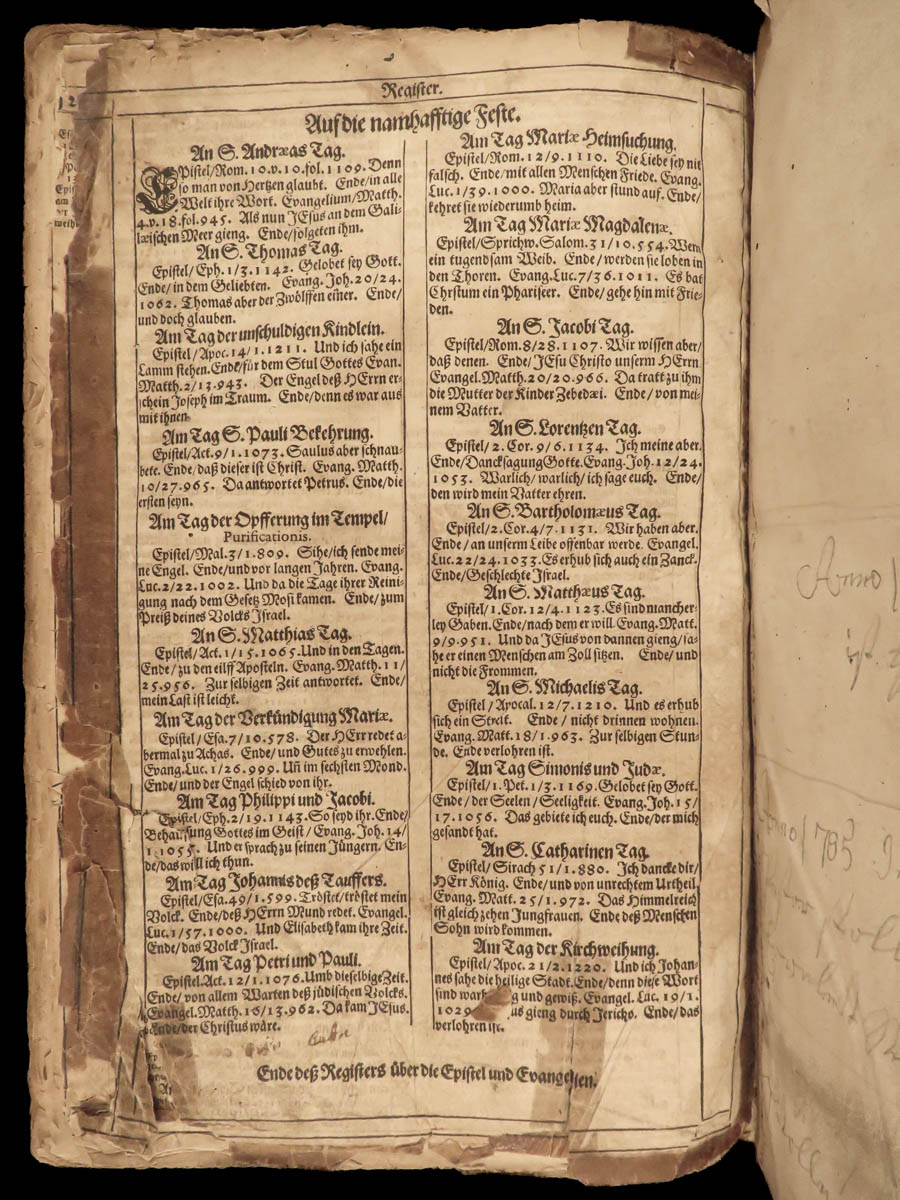 Register.
Auf die namhafftige Feste.
An S. Andræas Tag.
EPistel/Rom. 10.v.10.fol. 1109. Denn
so man von Hertzen glaubt. Ende/in alle
Welt ihre Wort. Evangelium/Matth.
4.v.18.fol.945. Als nun JEsus an dem Gali-
læischen Meer gieng. Ende/folgeten ihm.
An S. Thomas Tag.
Epistel/Eph. 1/3.1142. Gelobet sey Gott.
Ende/in dem Geliebten. Evang. Joh. 20/24.
1062. Thomas aber der Zwölffen einer. Ende/
und doch glauben.
Am Tag der unschuldigen Kindlein.
Epistel/Apoc. 14/1.1211. Und ich sahe ein
Lamm stehen. Ende/für dem Stul Gottes Evan.
Matth. 2/13.943. Der Engel deß HErrn er-
schein Joseph im Traum. Ende/denn es war aus
mit ihnen.
Am Tag S. Pauli Bekehrung.
Epistel/Act. 9/1.1073. Saulus aber schnau-
bete. Ende/daß dieser ist Christ. Evang. Matth.
10/27.965. Da antwortet Petrus. Ende/die
ersten seyn.
Am Tag der Opfferung im Tempel/
Purificationis.
Epistel/Mal. 3/1.809. Sihe/ich sende mei-
ne Engel. Ende/und vor langen Jahren. Evang.
Luc. 2/22.1002. Und da die Tage ihrer Reini-
gung nach dem Gesetz Mosi kamen. Ende/zum
Preiß deines Volcks Israel.
An S. Matthias Tag.
Epistel/Act. 1/15.1065. Und in den Tagen.
Ende/zu den eilff Aposteln. Evang. Matth. 11/
25.956. Zur selbigen Zeit antwortet. Ende/
mein Last ist leicht.
Am Tag der Verkündigung Mariæ.
Epistel/Esa. 7/10.578. Der HErr redet a-
bermal zu Achas. Ende/und Gutes zu erwehlen.
Evang. Luc. 1/26.999. Uñ im sechsten Mond.
Ende/und der Engel schied von ihr.
Am Tag Philippi und Jacobi.
Epistel/Eph. 2/19.1143. So seyd ihr. Ende/
Behausung Gottes im Geist/Evang. Joh. 14/
1.1055. Und er sprach zu seinen Jüngern. En-
de/das will ich thun.
Am Tag Johannis deß Tauffers.
Epistel/Esa. 49/1.599. Tröstet/tröstet mein
Volck. Ende/deß HErrn Mund redet. Evangel.
Luc. 1/57.1000. Und Elisabeth kam ihre Zeit.
Ende/das Volck Israel.
Am Tag Petri und Pauli.
Epistel. Act. 12/1.1076. Umb dieselbige Zeit.
Ende/von allem Warten deß jüdischen Volcks.
Evangel. Matth. 16/13.962. Da kam JEsus.
Ende/der Christus wäre.
Am Tag Mariæ Heimsuchung.
Epistel/Rom. 12/9.1110. Die Liebe sey nit
falsch. Ende/mit allen Menschen Friede. Evang.
Luc. 1/39.1000. Maria aber stund auf. Ende/
kehret sie wiederumb heim.
Am Tag Mariæ Magdalenæ.
Epistel/Sprichw. Salom. 31/10.554. Wem
ein tugendsam Weib. Ende/werden sie loben in
den Thoren. Evang. Luc. 7/36.1011. Es bat
Chrstum ein Phariseer. Ende/gehe hin mit Frie-
den.
An S. Jacobi Tag.
Epistel/Rom. 8/28.1107. Wir wissen aber/
daß denen. Ende/JEsu Christo unserm HErrn
Evangel. Matth. 20/20.966. Da tratt zu ihm
die Mutter der Kinder Zebedæi. Ende/von mei-
nem Vatter.
An S. Lorentzen Tag.
Epistel/2. Cor. 9/6.1134. Ich meine aber.
Ende/Dancksagung Gotte. Evang. Joh. 12/24.
1053. Warlich/warlich/ich sage euch. Ende/
den wird mein Vatter ehren.
An S. Bartholomæus Tag.
Epistel/2. Cor. 4/7.1131. Wir haben aber.
Ende/an unserm Leibe offenbar werde. Evangel.
Luc. 22/24.1033. Es erhub sich auch ein Zanck.
Ende/Geschlechte Israel.
An S. Matthæus Tag.
Epistel/1. Cor. 12/4.1123. Es sind mancher-
ley Gaben. Ende/nach dem er will. Evang. Matt.
9/9.951. Und da JEsus von dannen gieng/sa-
he er einen Menschen am Zoll sitzen. Ende/und
nicht die Frommen.
An S. Michaelis Tag.
Epistel/Apocal. 12/7.1210. Und es erhub
sich ein Streit. Ende/nicht drinnen wohnen.
Evang. Matt. 18/1.963. Zur selbigen Stun-
de. Ende verlohren ist.
Am Tag Simonis und Judæ.
Epistel/1. Pet. 1/3.1169. Gelobet sey Gott.
Ende/der Seelen/Seeligkeit. Evang. Joh. 15/
17.1056. Das gebiete ich euch. Ende/der mich
gesandt hat.
An S. Catharinen Tag.
Epistel/Sirach 51/1.880. Ich dancke dir/
HErr König. Ende/und von unrechtem Urtheil.
Evang. Matt. 25/1.972. Das Himmelreich
ist gleich zehen Jungfrauen. Ende deß Menschen
Sohn wird kommen.
Am Tag der Kirchweihung.
Epistel/Apoc. 21/2.1220. Und ich Johan-
nes sahe die heilige Stadt. Ende/denn diese Wort
sind und gewiß. Evangel. Luc. 19/1.
1029 gieng durch Jericho. Ende/das
verlohren ist.
Ende deß Registers über die Epistel und Evangelien.
Anno
1785